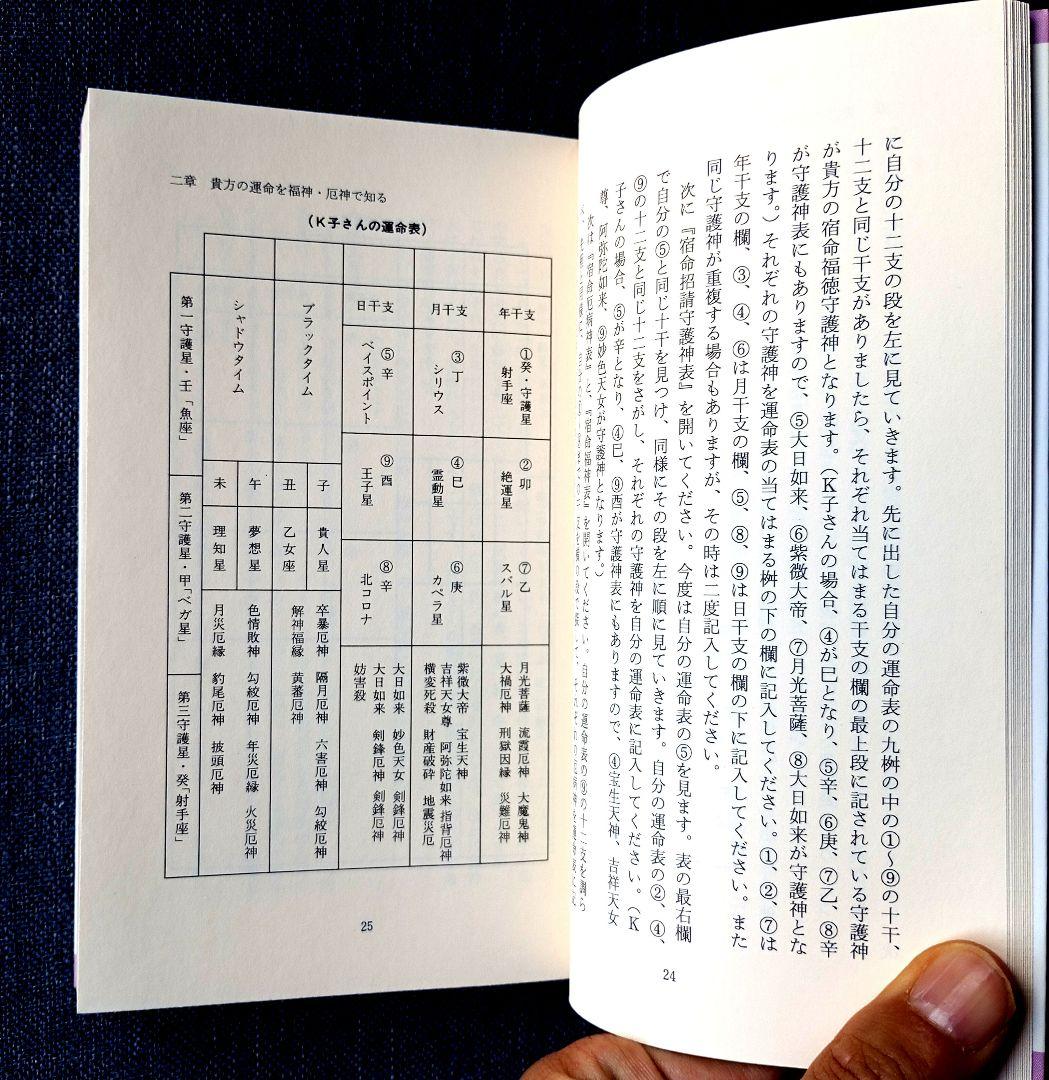 に自分の十二支の段を左に見ていきます。先に出した自分の運命表の九桝の中の①〜⑨の十干、
十二支と同じ干支がありましたら、それぞれ当てはまる干支の欄の最上段に記されている守護神
が貴方の宿命福徳守護神となります。(K子さんの場合、④が巳となり、⑤辛、⑥庚、⑦乙、⑧辛
が守護神表にもありますので、⑤大日如来、⑥紫微大帝、⑦月光菩薩、⑧大日如来が守護神とな
ります。)それぞれの守護神を運命表の当てはまる桝の下の欄に記入してください。①、②、⑦は
年干支の欄、③、④、⑥は月干支の欄、⑤、⑧、⑨は日干支の欄の下に記入してください。また
同じ守護神が重複する場合もありますが、その時は二度記入してください。
次に『宿命招請守護神表』を開いてください。今度は自分の運命表の⑤を見ます。表の最右欄
で自分の⑤と同じ十干を見つけ、同様にその段を左に順に見ていきます。自分の運命表の②、④、
⑨の十二支と同じ十二支をさがし、それぞれの守護神を自分の運命表に記入してください。(K
子さんの場合、⑤が辛となり、④巳、⑨酉が守護神表にもありますので、④宝生天神、吉祥天女
尊、阿弥陀如来、⑨妙色天女が守護神となります。)
次は『宿命厄病神表』と、『宿命福神表』を開いてください。自分の運命表の⑨の十二支を調ら
24
二章 貴方の運命を福神・厄神で知る
(K子さんの運命表)
年干支
①癸・守護星
射手座
②卯
絶運星
⑦乙
スバル星
月光菩薩 流霞厄神 大魔鬼神
大禍厄神 刑獄因縁 災難厄神
月干支
③丁
シリウス
④巳
霊動星
⑥庚
カペラ星
紫微大帝 宝生天神
吉祥天女尊 阿弥陀如来 指背厄神
横変死殺 財産破砕 地震災厄
日干支
⑤辛
ベイスポイント
⑨酉
王子星
⑧辛
北コロナ
大日如来 妙色天女 剣鋒厄神
大日如来 剣鋒厄神 剣鋒厄神
妨害殺
ブラックタイム
子
貴人星
卒暴厄神 隔月厄神 六害厄神 勾絞厄神
丑
乙女座
解神福縁 黄蕃厄神
シャドウタイム
午
夢想星
色情敗神 勾絞厄神 年災厄縁 火災厄神
未
理知星
月災厄縁 豹尾厄神 披頭厄神
第一守護星・壬「魚座」
第二守護星・甲「ベガ星」
第三守護星・癸「射手座」
25